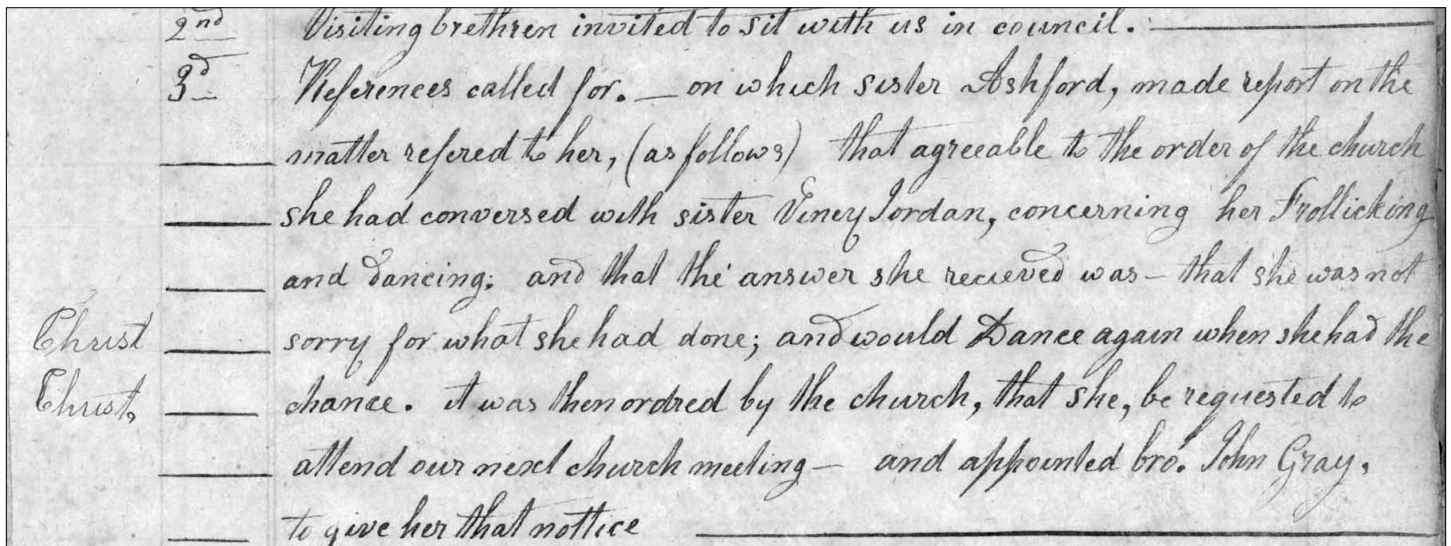 2nd Visiting brethren invited to sit with us in council. —
3d References called for. — on which sister Ashford, made report on the
matter refered to her, (as follows) that agreeable to the order of the church
she had conversed with sister Viney Jordan, concerning her Frollicking
and dancing; and that the answer she recieved was — that she was not
Christ sorry for what she had done; and would Dance again when she had the
Christ, chance. it was then ordred by the church, that she, be requested to
attend our next church meeting — and appointed bro. John Gray,
to give her that nottice